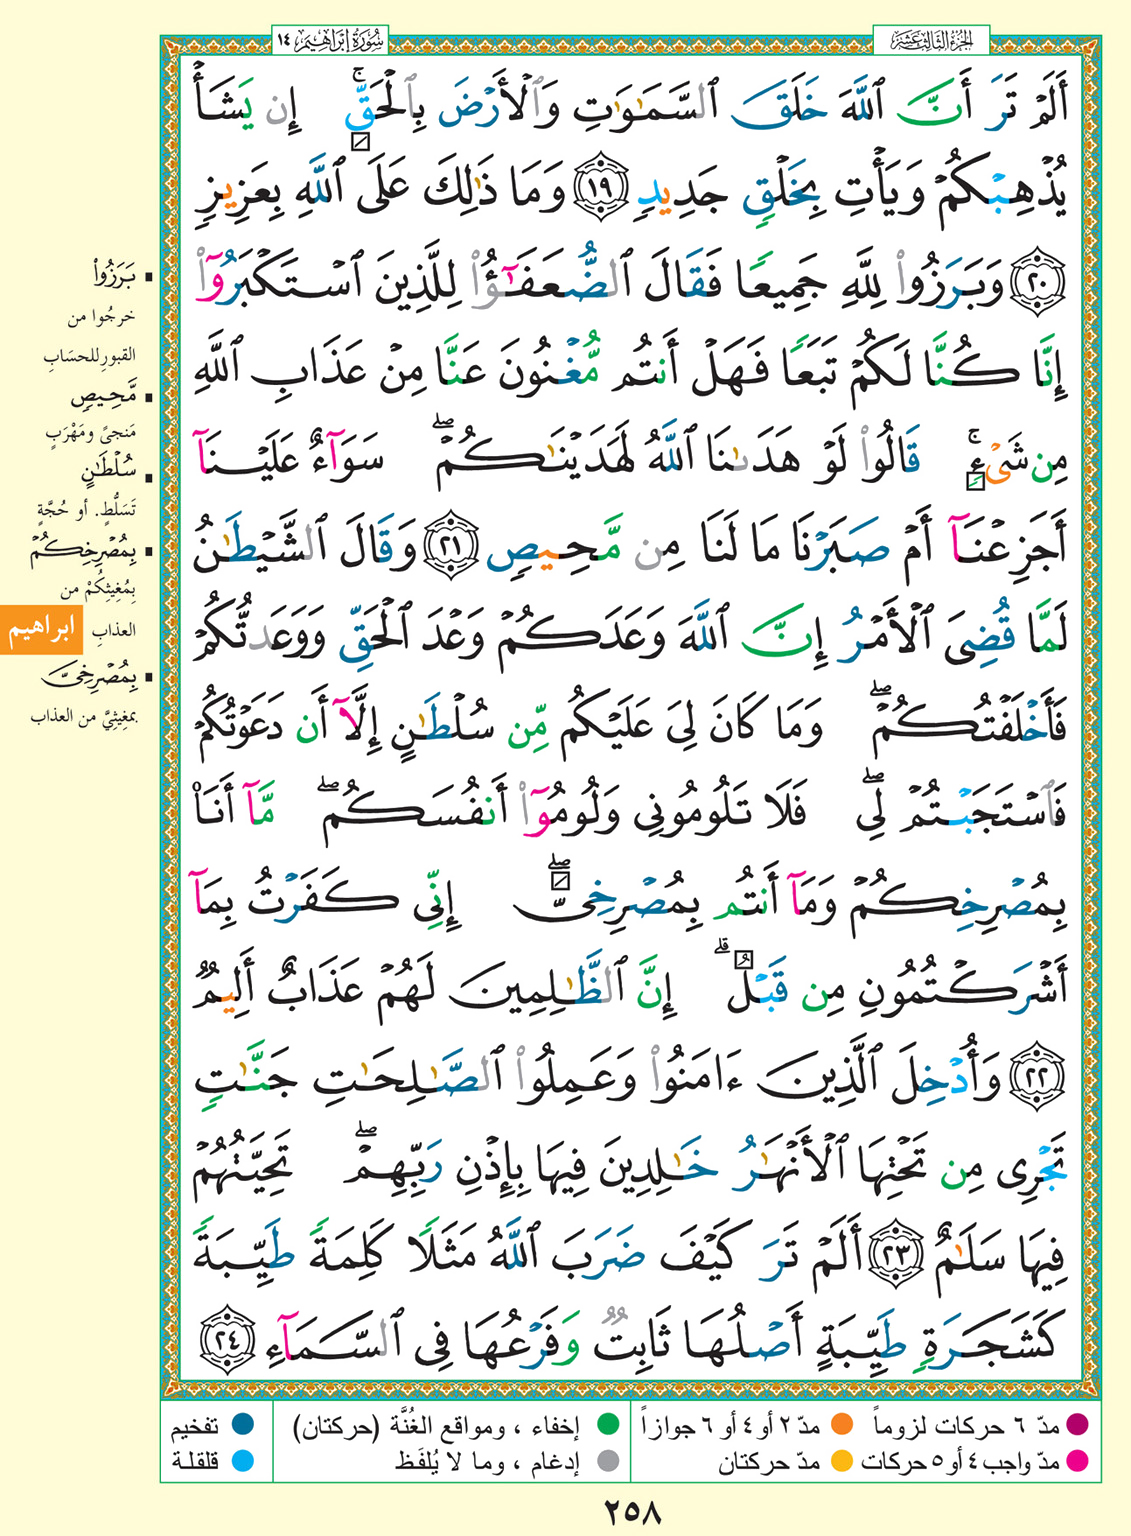 الجزء الثالث عشر
سورة إبراهيم ١٤
أَلَمْ تَرَ أَنَّ ٱللَّهَ خَلَقَ ٱلسَّمَٰوَٰتِ وَٱلْأَرْضَ بِٱلْحَقِّ ۚ إِن يَشَأْ
يُذْهِبْكُمْ وَيَأْتِ بِخَلْقٍ جَدِيدٍ ١٩ وَمَا ذَٰلِكَ عَلَى ٱللَّهِ بِعَزِيزٍ
٢٠ وَبَرَزُوا۟ لِلَّهِ جَمِيعًا فَقَالَ ٱلضُّعَفَٰٓؤُا۟ لِلَّذِينَ ٱسْتَكْبَرُوٓا۟
إِنَّا كُنَّا لَكُمْ تَبَعًا فَهَلْ أَنتُم مُّغْنُونَ عَنَّا مِنْ عَذَابِ ٱللَّهِ
مِن شَىْءٍ ۚ قَالُوا۟ لَوْ هَدَىٰنَا ٱللَّهُ لَهَدَيْنَٰكُمْ ۖ سَوَآءٌ عَلَيْنَآ
أَجَزِعْنَآ أَمْ صَبَرْنَا مَا لَنَا مِن مَّحِيصٍ ٢١ وَقَالَ ٱلشَّيْطَٰنُ
لَمَّا قُضِىَ ٱلْأَمْرُ إِنَّ ٱللَّهَ وَعَدَكُمْ وَعْدَ ٱلْحَقِّ وَوَعَدتُّكُمْ
فَأَخْلَفْتُكُمْ ۖ وَمَا كَانَ لِىَ عَلَيْكُم مِّن سُلْطَٰنٍ إِلَّآ أَن دَعَوْتُكُمْ
فَٱسْتَجَبْتُمْ لِى ۖ فَلَا تَلُومُونِى وَلُومُوٓا۟ أَنفُسَكُم ۖ مَّآ أَنَا۠
بِمُصْرِخِكُمْ وَمَآ أَنتُم بِمُصْرِخِىَّ ۖ إِنِّى كَفَرْتُ بِمَآ
أَشْرَكْتُمُونِ مِن قَبْلُ ۗ إِنَّ ٱلظَّٰلِمِينَ لَهُمْ عَذَابٌ أَلِيمٌ
٢٢ وَأُدْخِلَ ٱلَّذِينَ ءَامَنُوا۟ وَعَمِلُوا۟ ٱلصَّٰلِحَٰتِ جَنَّٰتٍ
تَجْرِى مِن تَحْتِهَا ٱلْأَنْهَٰرُ خَٰلِدِينَ فِيهَا بِإِذْنِ رَبِّهِمْ ۖ تَحِيَّتُهُمْ
فِيهَا سَلَٰمٌ ٢٣ أَلَمْ تَرَ كَيْفَ ضَرَبَ ٱللَّهُ مَثَلًا كَلِمَةً طَيِّبَةً
كَشَجَرَةٍ طَيِّبَةٍ أَصْلُهَا ثَابِتٌ وَفَرْعُهَا فِى ٱلسَّمَآءِ ٢٤
بَرَزُوا۟
خرجُوا من
القبورِ للحسَابِ
مَّحِيصٍ
مَنجىً ومَهْرَبٍ
سُلْطَٰنٍ
تَسَلُّطٍ. أو حُجَّةٍ
بِمُصْرِخِكُمْ
بِمُغِيثِكُمْ من
العذابِ
بِمُصْرِخِىَّ
بمغِيثيَّ من العذاب.
ابراهيم
مدّ ٦ حركات لزوماً
مدّ ٢ أو ٤ أو ٦ جوازاً
إخفاء ، ومواقع الغُنَّة (حركتان)
تفخيم
مدّ واجب ٤ أو ٥ حركات
مدّ حركتان
إدغام ، وما لا يُلفَظ
قلقلة
٢٥٨